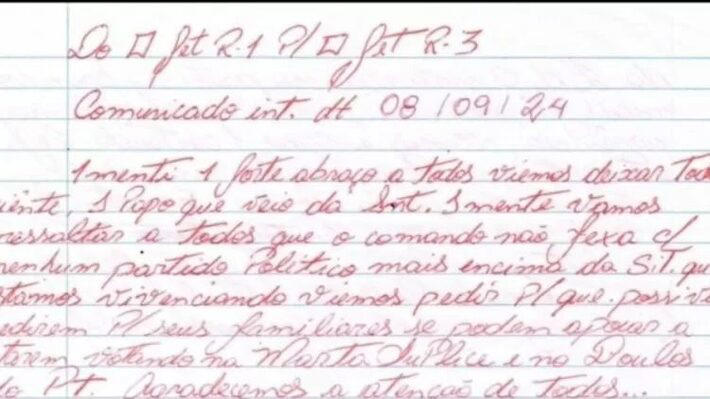 Do □ Jet R-1 P/ □ Jet R-3
Comunicado int. dt 08/09/24
1menti 1 forte abraço a todos viemos deixar Tod
iênte, 1 Papo que veio da Snt. 1mente vamos
ressaltar a todos que o comando não fexa c/
nenhum partido Politico mais encima da Sit. qu
stamos vivenciando viemos pedir P/ que possiv
edirem P/ seus familiares se podem apoiar a
tarem votando na Marta SuPlice e no Boulos
do Pt. Agradecemos a atenção de Todos...